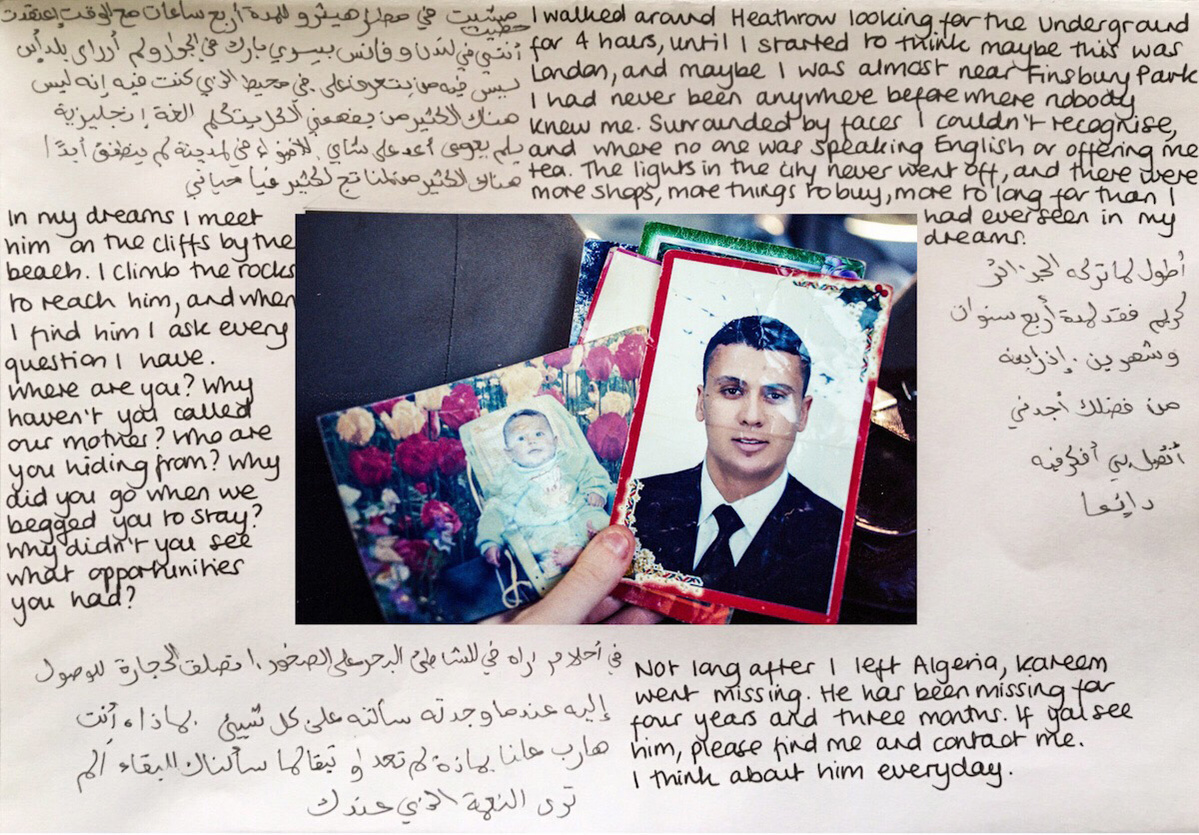 I walked around Heathrow looking for the underground
for 4 hours, until I started to think maybe this was
London, and maybe I was almost near Finsbury Park
I had never been anywhere before where nobody
knew me. Surrounded by faces I couldn't recognise,
and where no one was speaking English or offering me
tea. The lights in the city never went off, and there were
more shops, more things to buy, more to long for than I
had ever seen in my
dreams.
في مطار هيثرو للمدة أربع ساعات مع الوقت إعتقدت
أنتي في لندن و فانس بيسري بارك في الجوار ولم أرى بلد أين
ليس فيه من يتعرف علي في محيط الذي كنت فيه إنه ليس
هناك الكثير من يفهمني الكل يتكلم الغة إنجليزية
أعد علي شاي في لمدينة لم ينطفئ أبدًا
هناك الكثير
In my dreams I meet
him on the cliffs by the
beach. I climb the rocks
to reach him, and when
I find him I ask every
question I have.
Where are you? Why
haven't you called
our mother? Who are
you hiding from? Why
did you go when we
begged you to stay?
Why didn't you see
what opportunities
you had?
أطول لما تركه الجزائر
كريم فقد لمدة أربع سنوان
وشهرين. إذ رايته
من فضلك أجدني
أتصل بي أفكر فيه
دايعا
في أحلام راه في للشاطئ البحر على الصخور الحجارة للوصول
إليه عندما وجدته سألته على كل شيئ بماذا، أنت
هارب للبقاء ألم
ترى النعمة الذي عندك
Not long after I left Algeria, Kareem
went missing. He has been missing for
four years and three months. If you see
him, please find me and contact me.
I think about him everyday.